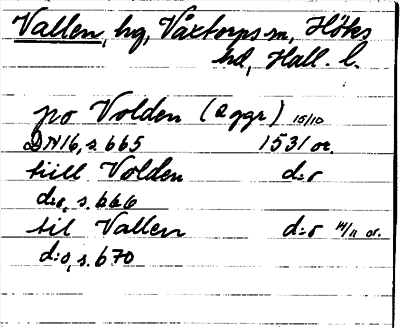 Vallen, hg, Våxtorps sn, Höks
hd, Hall. l.
po Volden (2 ggr) 15/10
DN16, s. 665 1531 or.
tiill Volden d:o
d:o, s. 666
til Vallen d:o 14/11 or.
d:o, s. 670